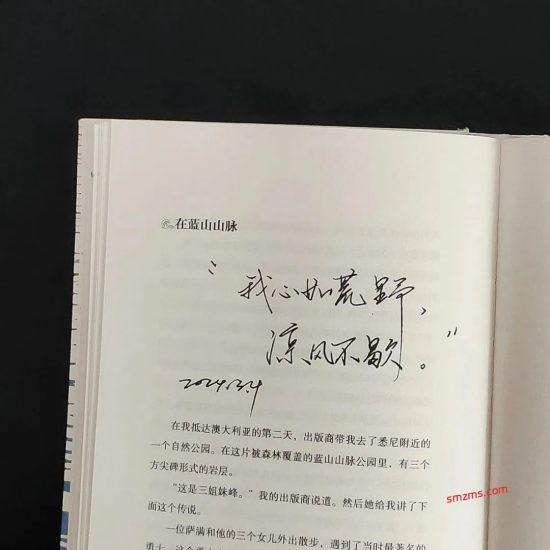 在蓝山山脉
“我心如荒野，
凉风不歇。”
2024.3.4
在我抵达澳大利亚的第二天，出版商带我去了悉尼附近的
一个自然公园。在这片被森林覆盖的蓝山山脉公园里，有三个
方尖碑形式的岩层。
“这是三姐妹峰。”我的出版商说道。然后她给我讲了下
面这个传说。
一位萨满和他的三个女儿外出散步，遇到了当时最著名的
勇士。这个勇士
smzms.com